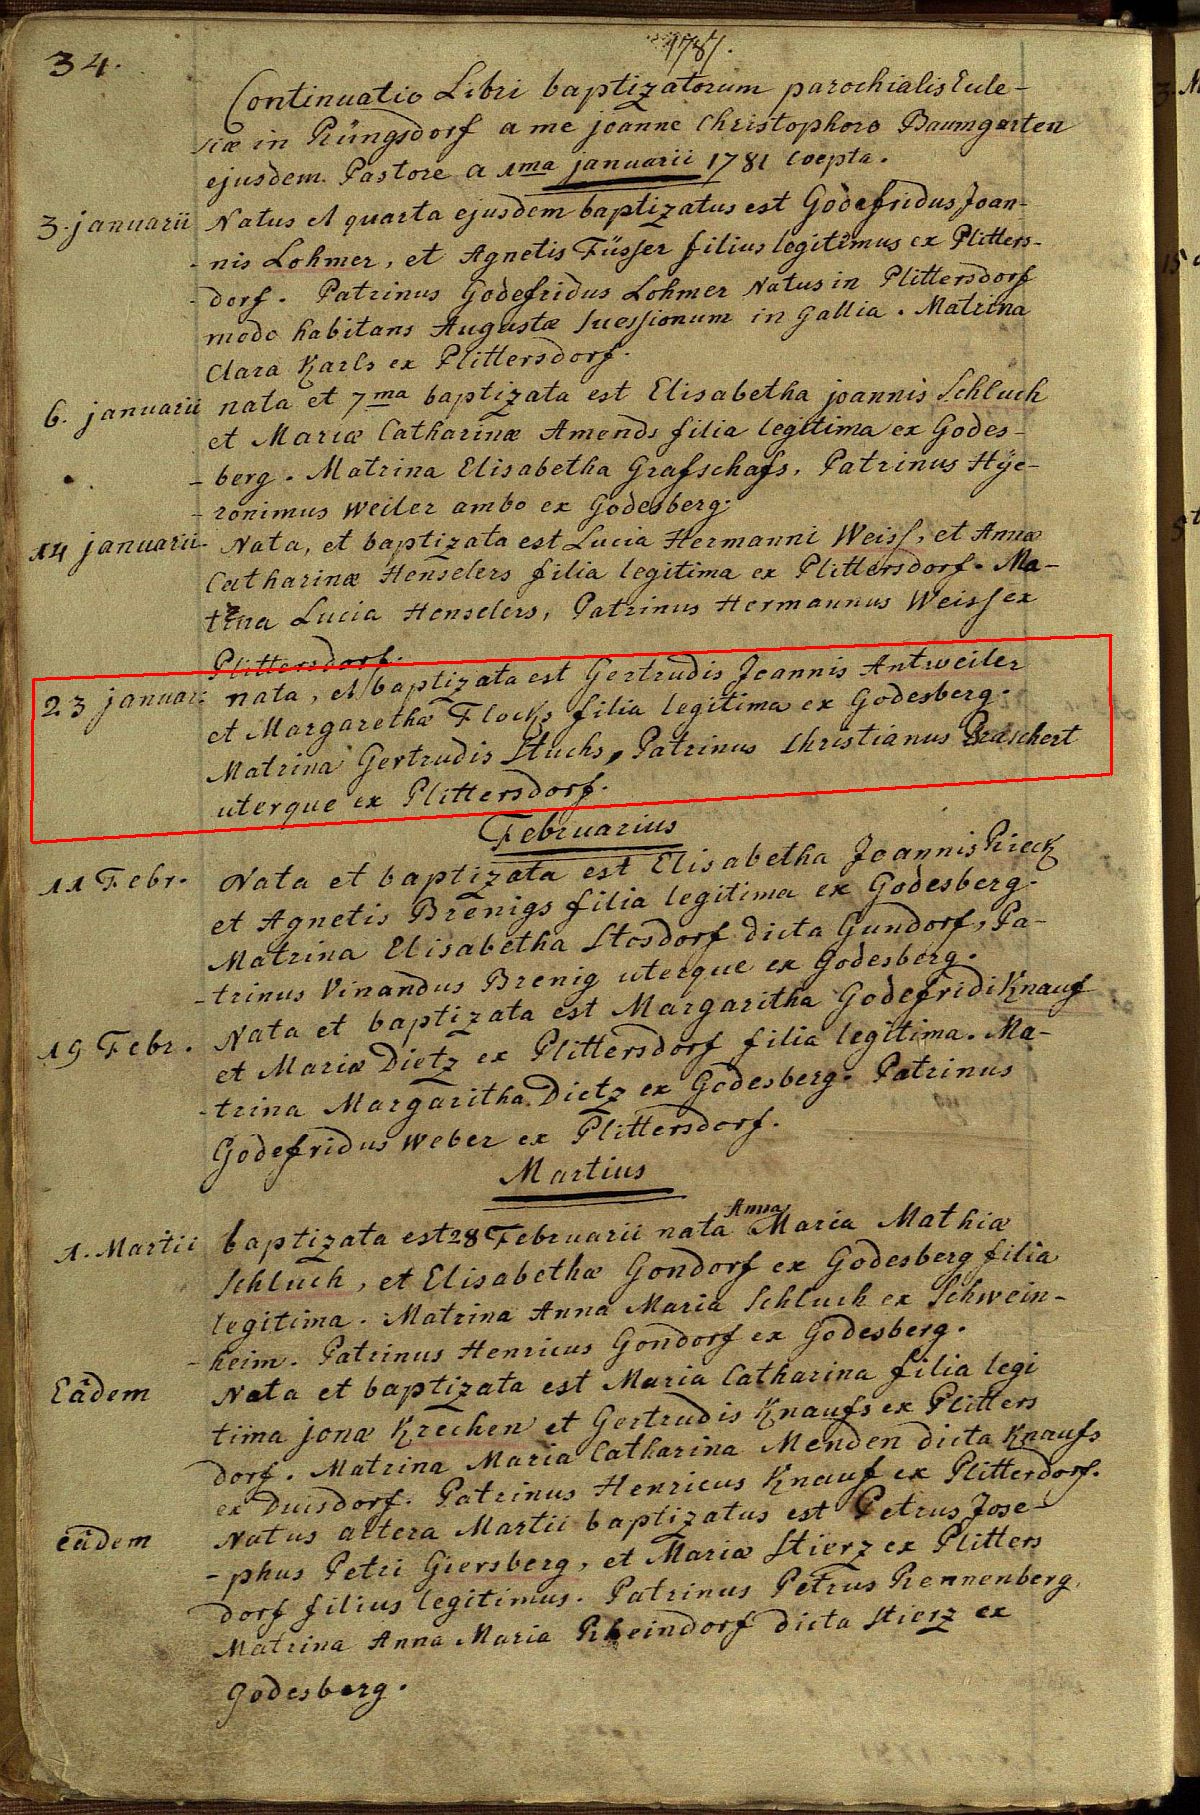 34.
1781.
Continuatio Libri baptizatorum parochialis Eule-
siæ in Rüngsdorf a me joanne Christophoro Baumgarten
ejusdem Pastore a 1ma januarii 1781 coepta.
3. januarii Natus et quarta ejusdem baptizatus est Godefridus Joan-
nis Lohmer, et Agnetis Füsser filius legitimus ex Plitters-
dorf. Patrinus Godefridus Lohmer Natus in Plittersdorf
modo habitans Augustæ suessionum in Gallia. Matrina
Clara Karls ex Plittersdorf.
6. januarii nata et 7ma baptizata est Elisabetha joannis Schluch
et Mariæ Catharinæ Amends filia legitima ex Godes-
berg. Matrina Elisabetha Grafschafs, Patrinus Hÿe-
ronimus Weiler ambo ex Godesberg.
14 januarii Nata, et baptizata est Lucia Hermanni Weiss, et Annæ
Catharinæ Henselers filia legitima ex Plittersdorf. Ma-
trina Lucia Henselers, Patrinus Hermannus Weiss ex
Plittersdorf.
23 januar: nata, et baptizata est Gertrudis Joannis Antweiler
et Margarethæ Flocks filia legitima ex Godesberg.
Matrina Gertrudis Stuchs, Patrinus Christianus Braschert
uterque ex Plittersdorf.
Februarius
11 Febr. Nata et baptizata est Elisabetha Joannis Rieck
et Agnetis Brenigs filia legitima ex Godesberg.
Matrina Elisabetha Stosdorf dicta Gundorf, Pa-
trinus Vinandus Brenig uterque ex Godesberg.
19 Febr. Nata et baptizata est Margaritha Godefridi Knauf
et Mariæ Dietz ex Plittersdorf filia legitima. Ma-
trina Margaritha Dietz ex Godesberg. Patrinus
Godefridus Weber ex Plittersdorf.
Martius
1. Martii baptizata est 28 Februarii nata Anna Maria Mathiæ
Schluch, et Elisabethæ Gondorf ex Godesberg filia
legitima. Matrina Anna Maria Schluch ex Schwein-
heim. Patrinus Henricus Gondorf ex Godesberg.
Eâdem Nata et baptizata est Maria Catharina filia legi
tima jonæ Krechen et Gertrudis Knaufs ex Plitters
dorf. Matrina Maria Catharina Menden dicta Knaufs
ex Duisdorf. Patrinus Henricus Knauf ex Plitterdorf.
eâdem Natus altera Martii baptizatus est Petrus Jose-
phus Petri Giersberg, et Mariæ Stierz ex Plitters
dorf filius legitimus. Patrinus Petrus Rennenberg,
Matrina Anna Maria Rheindorf dicta Stierz ex
Godesberg.